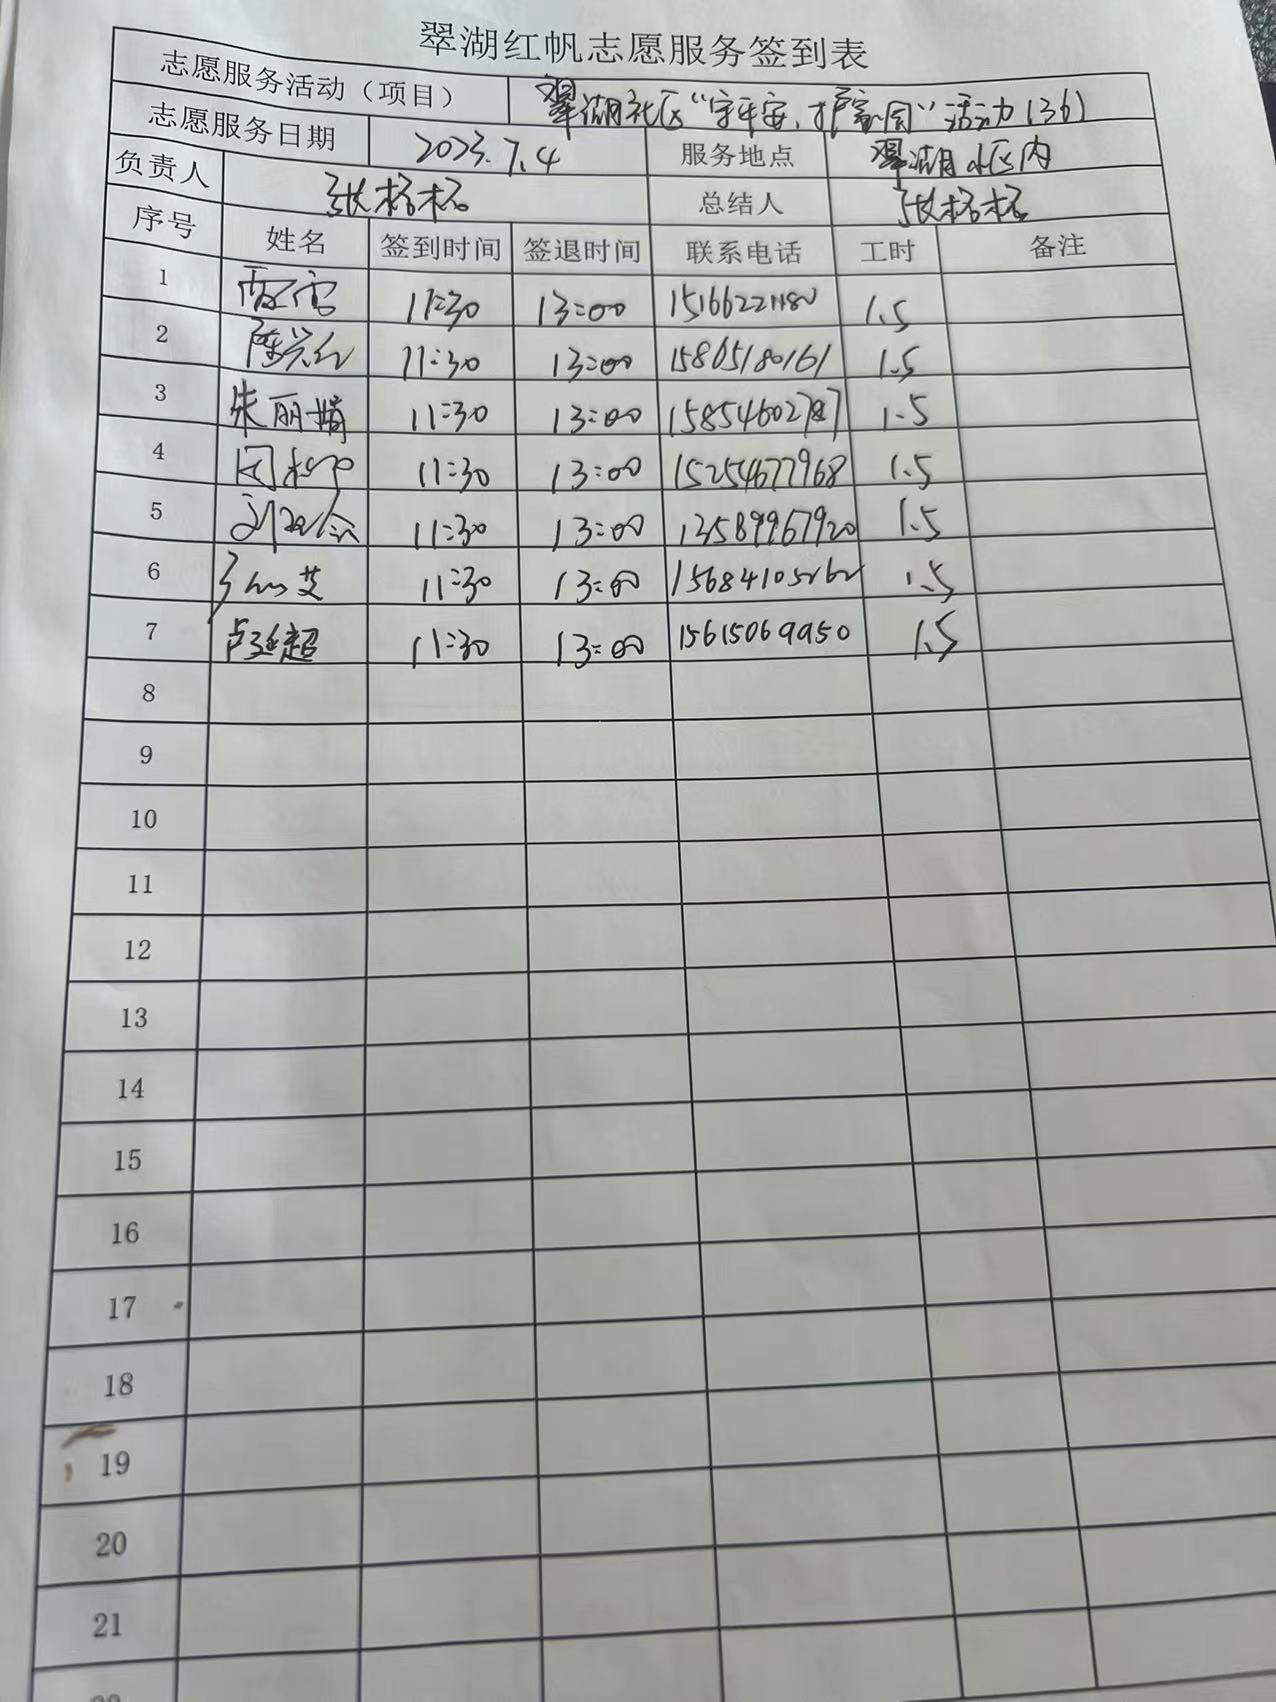 翠湖红帆志愿服务签到表
志愿服务活动（项目） 翠湖社区“守平安，护家园”活动(36)
志愿服务日期 2023.7.4 服务地点 翠湖小区内
负责人 张格格 总结人 张格格
序号 姓名 签到时间 签退时间 联系电话 工时 备注
1 11:30 13:00 1.5
2 陈兴红 11:30 13:00 15865180161 1.5
3 朱丽娟 11:30 13:00 1.5
4 11:30 13:00 15254677968 1.5
5 11:30 13:00 13589967920 1.5
6 11:30 13:00 1.5
7 卢延超 11:30 13:00 15615069950 1.5
8
9
10
11
12
13
14
15
16
17
18
19
20
21